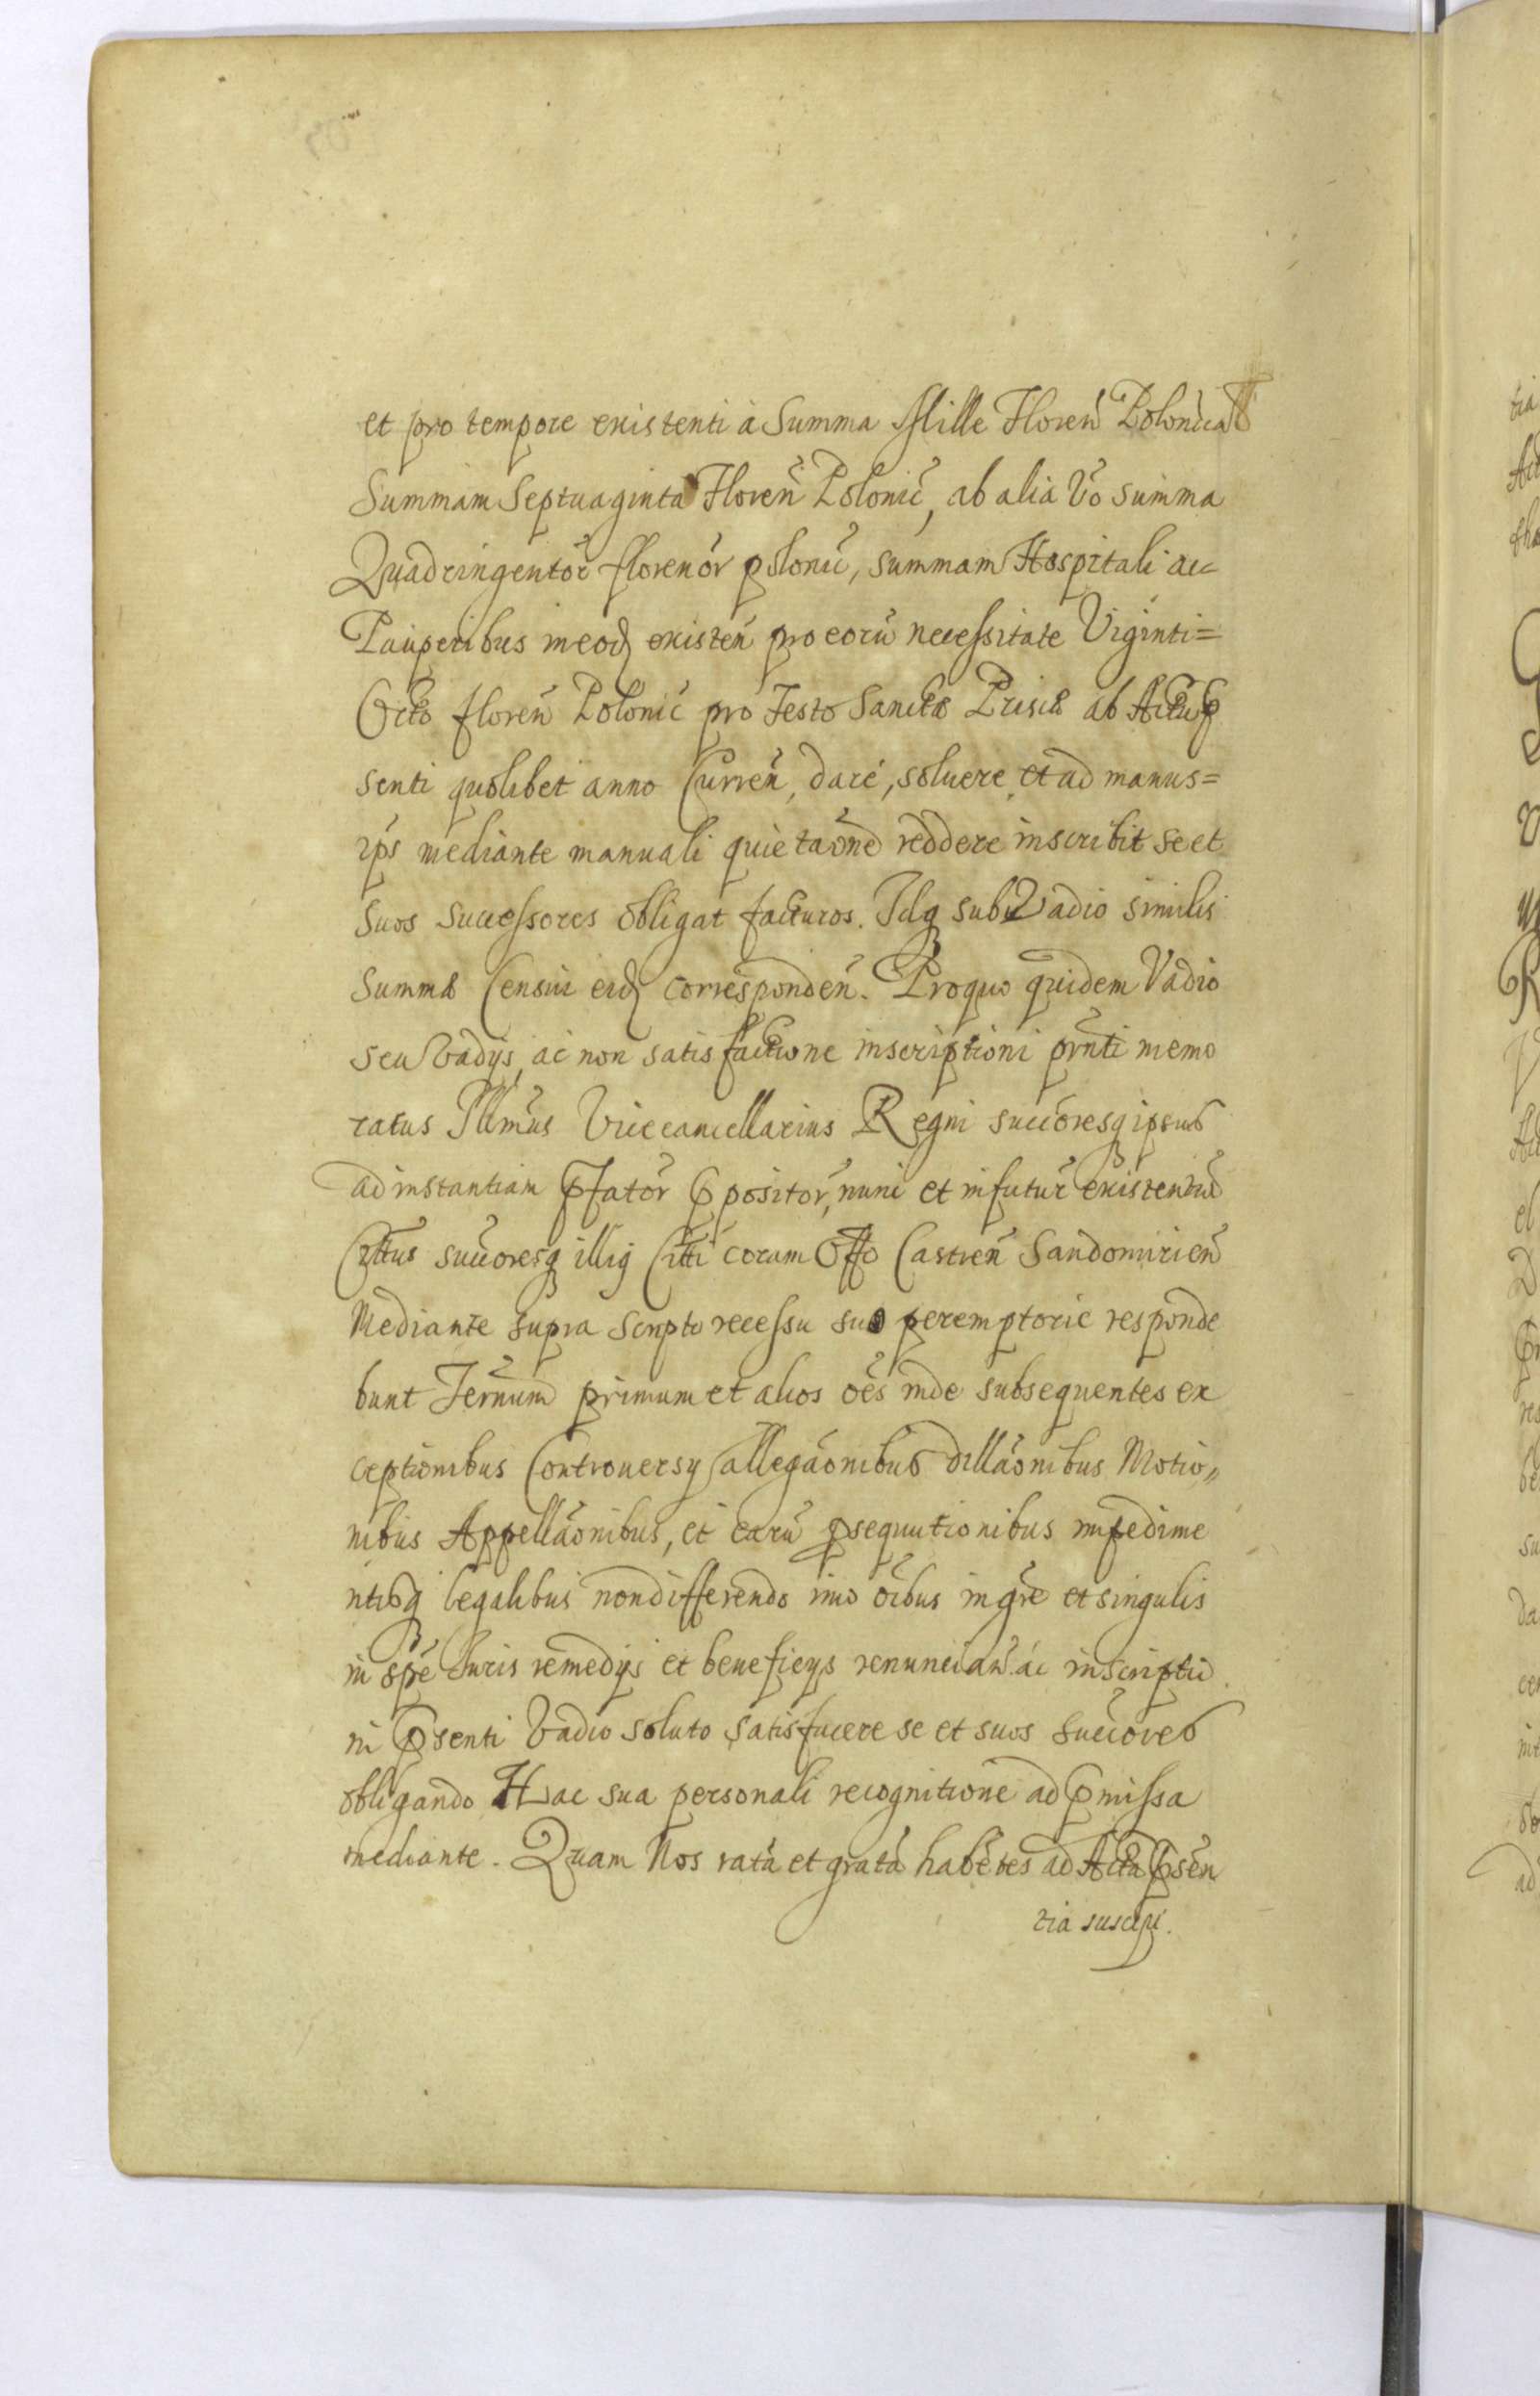 et pro tempore existenti à Summa Mille Floreñ Polonica
Summam Septuaginta Floreñ Polonič, ab alia Vo summa
Quadringentor̃ florenor̃ polonič, summam Hospitali ac
Pauperibus in eod existeñ pro eorũ necessitate Viginti=
Octo floreñ Polonič pro Festo Sanctæ Priscæ ab Actu p̃
senti quolibet anno Curreñ, dare, soluere, et ad manus=
ips mediante manuali quietaõne reddere inscribit se et
suos successores obligat facturos. Idq sub Vadio similis
summæ Censui eid correspondeñ. Pro quo quidem Vadio
seu Vadijs, ac non satisfactione inscriptioni pr̃nti memo
ratus Illm̃us Vicecancellarius Regni succõresq ipsius
ad instantiam p̃fator̃ p̃positor̃, nunc et in futur̃ existentiũ
Cittus succoresq illiq Citti coram Offo Castreñ Sandomirieñ
Mediante supra scripto recessu suo peremptorie responde
bunt Ter̃num primum et alios oẽs inde subsequentes ex
ceptionibus Controuersy allegaõnibus dillaõnibus Motio„
nibus Appellaõnibus, et earũ p̃sequutionibus impedime
ntisq legalibus non differendo imo oĩbus in gr̃e et singulis
in sp̃e Iuris remedijs et beneficys renuncian̄ ac inscriptio.
in p̃senti Vadio soluto satisfacere se et suos succõres
obligando Hac sua personali recognitione ad p̃missa
mediante. Quam Nos ratã et gratã habẽtes ad Acta p̃sẽn
tia suscepi.